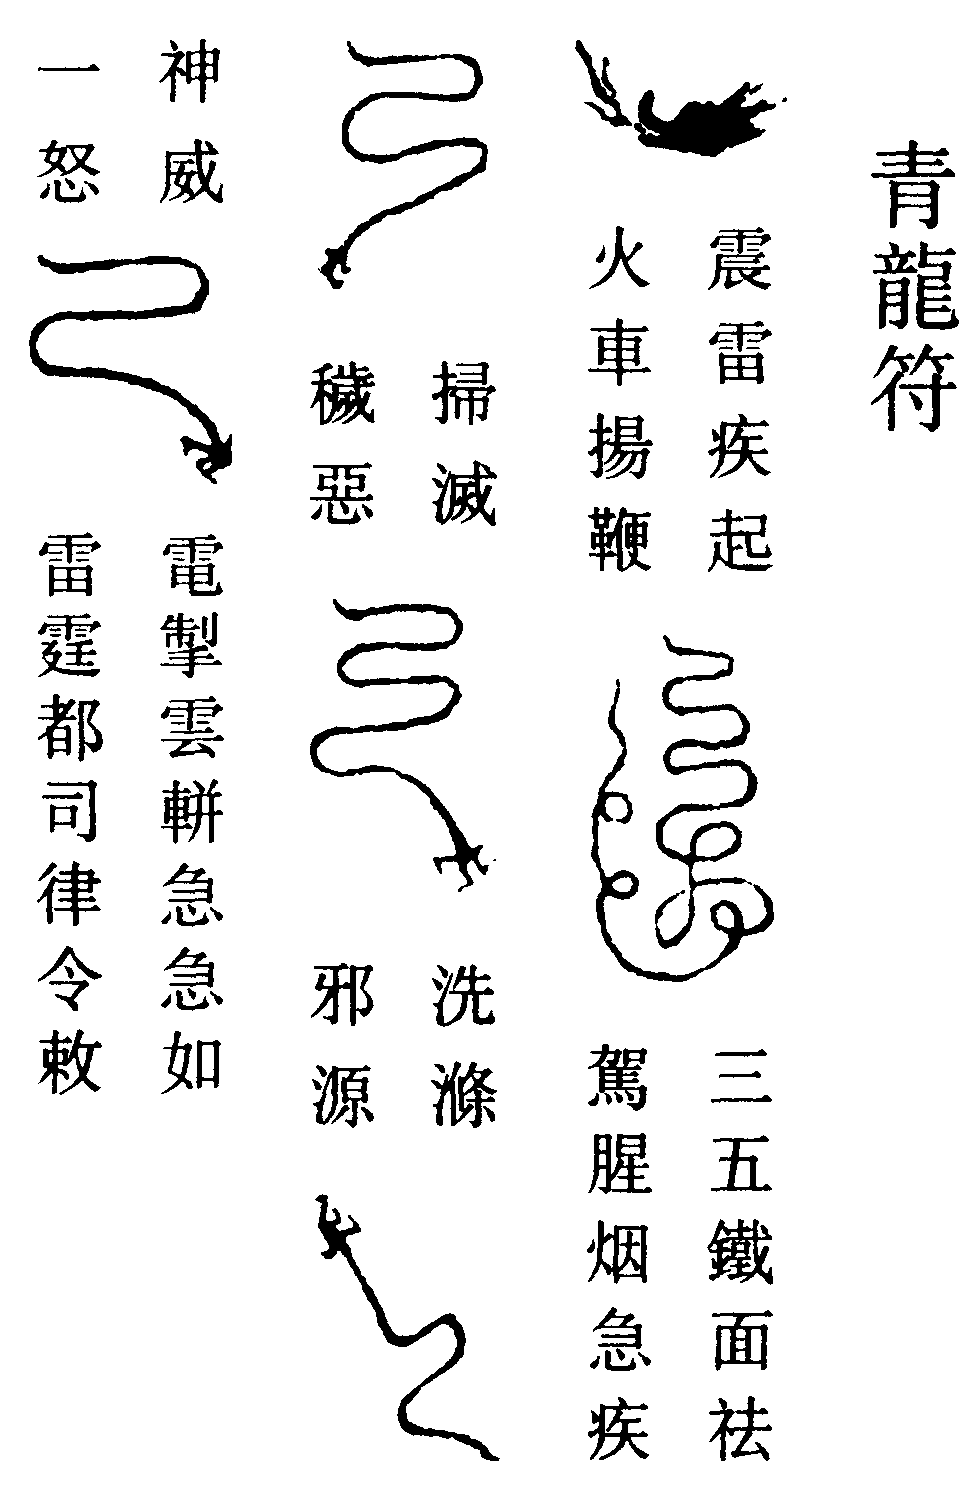 青龍符
震雷疾起
火車揚鞭
三五鐵面祛
駕腥烟急疾
掃滅
穢惡
洗滌
邪源
神威
一怒
電掣雲軿急急如
雷霆都司律令敕